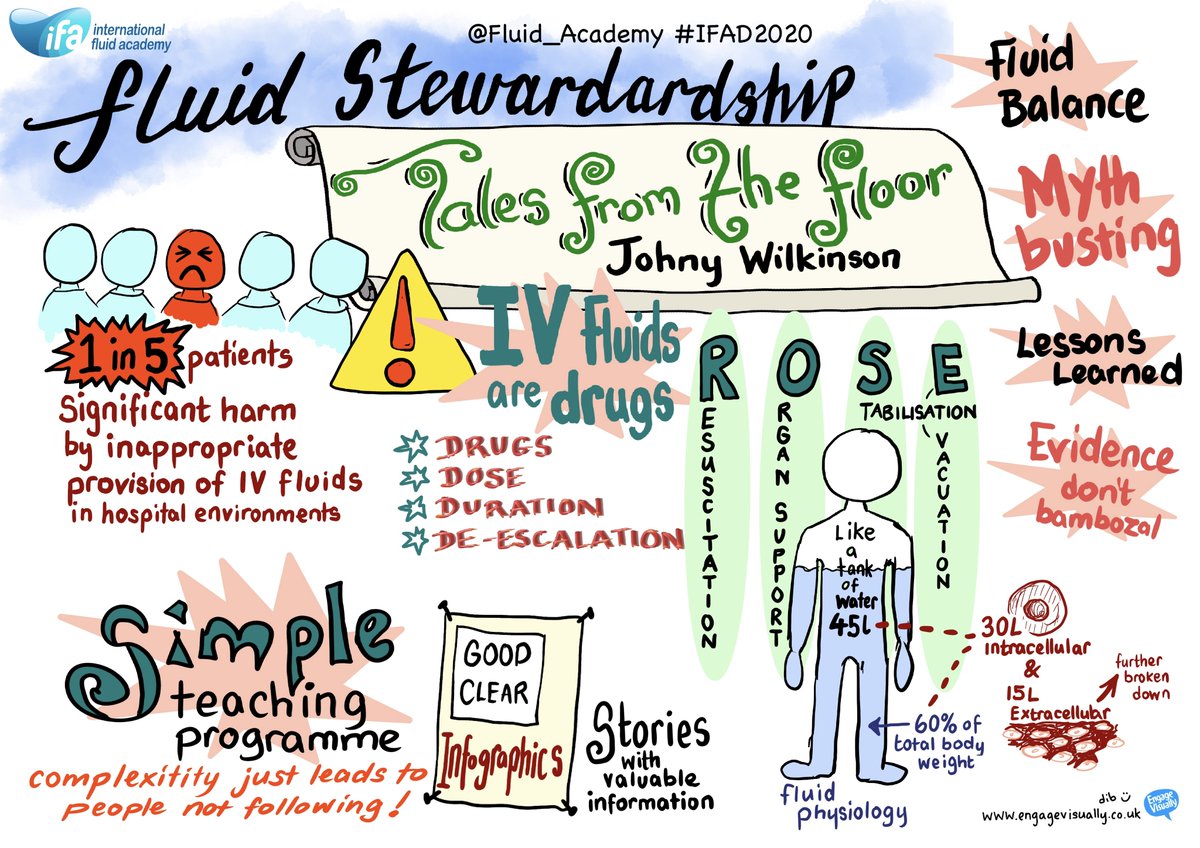 ifa international
fluid academy
@Fluid_Academy #IFAD2020
fluid Stewardardship
Tales from The floor
Johny Wilkinson
Fluid
Balance
Myth
busting
Lessons
Learned
Evidence
don't
bambozal
1 in 5 patients
Significant harm
by inappropriate
provision of IV fluids
in hospital environments
!
IV fluids
are drugs
DRUGS
DOSE
DURATION
DE-ESCALATION
RESUSCITATION
ORGAN SUPPORT
STABILISATION
EVACUATION
Like
a
tank
of
water
45l
30L
intracellular
&
15L
Extracellular
further
broken
down
60% of
total body
weight
fluid
physiology
Simple
teaching
programme
complexitity just leads to
people not following!
GOOD
CLEAR
Infographics
Stories
with
valuable
information
dib
www.engagevisually.co.uk
Engage
Visually